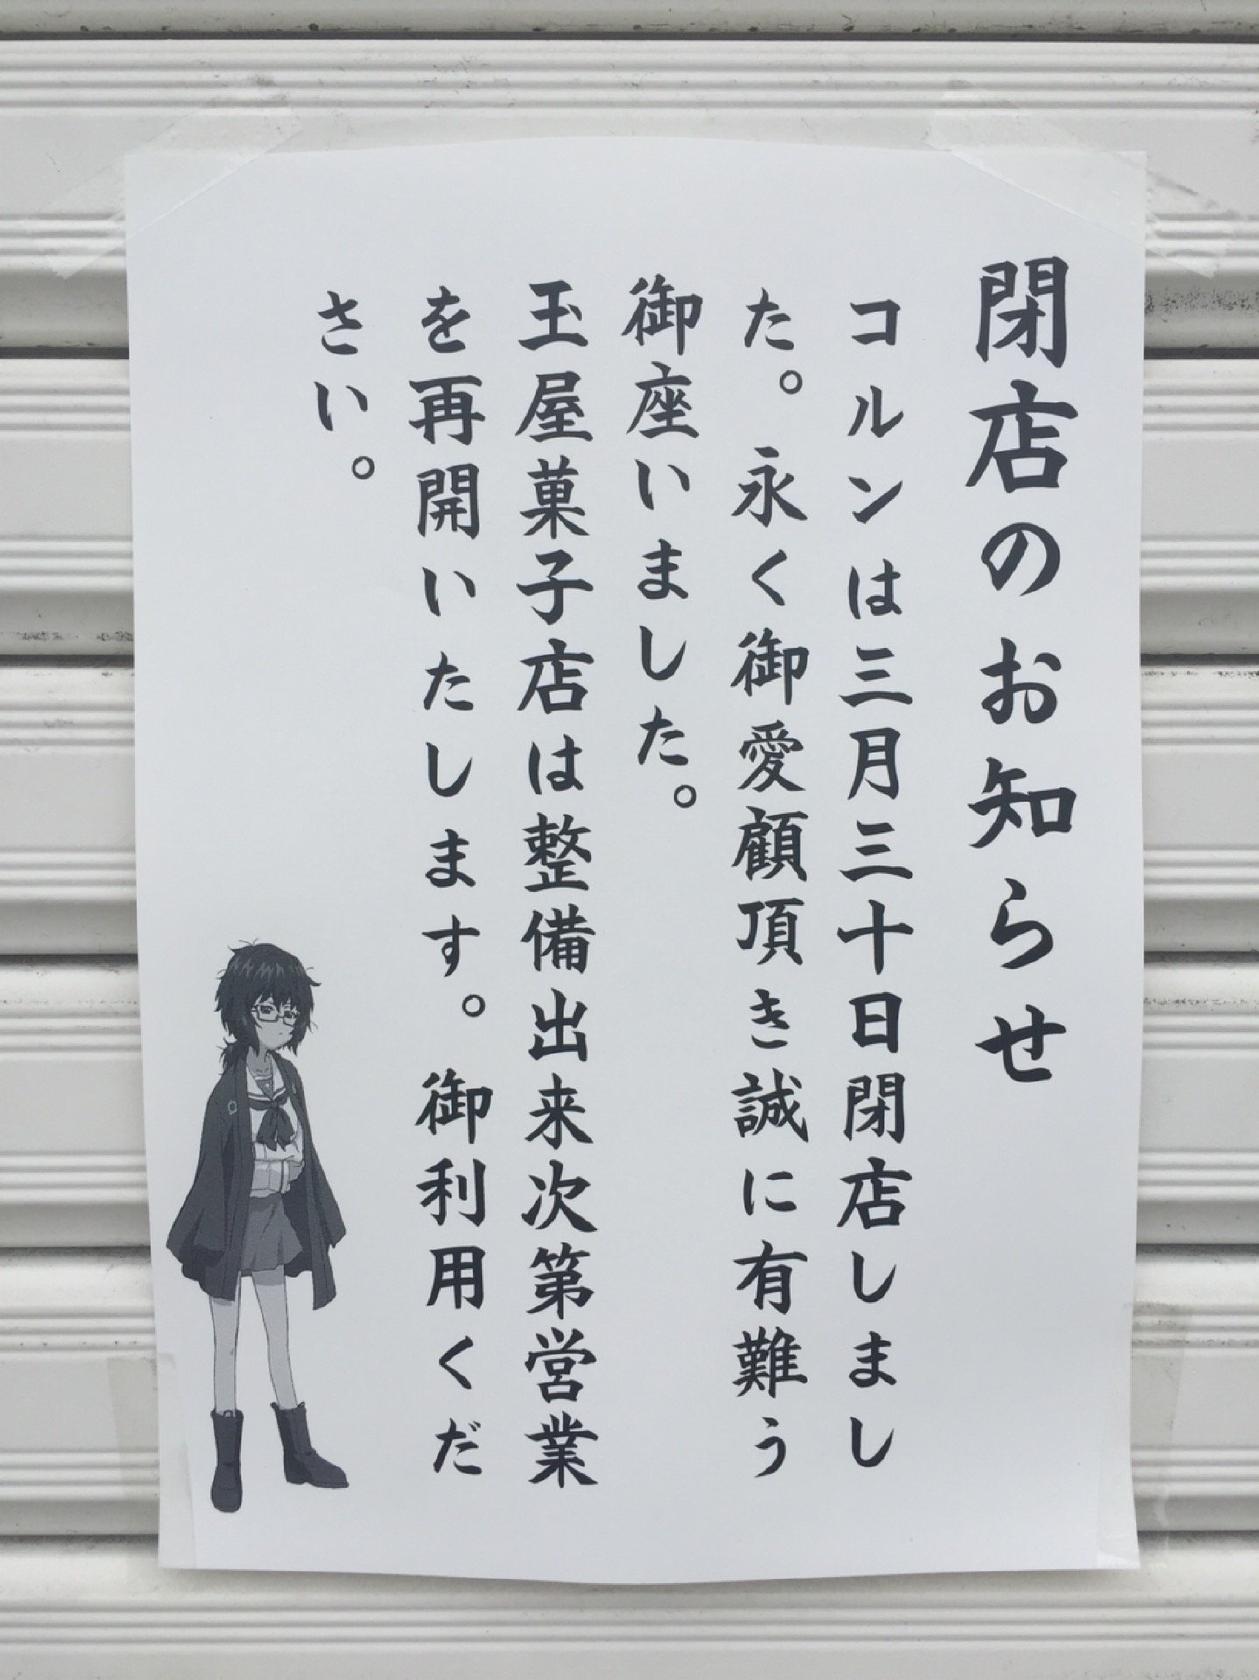 閉店のお知らせ
コルンは三月三十日閉店しまし
た。永く御愛顧頂き誠に有難う
御座いました。
玉屋菓子店は整備出来次第営業
を再開いたします。御利用くだ
さい。